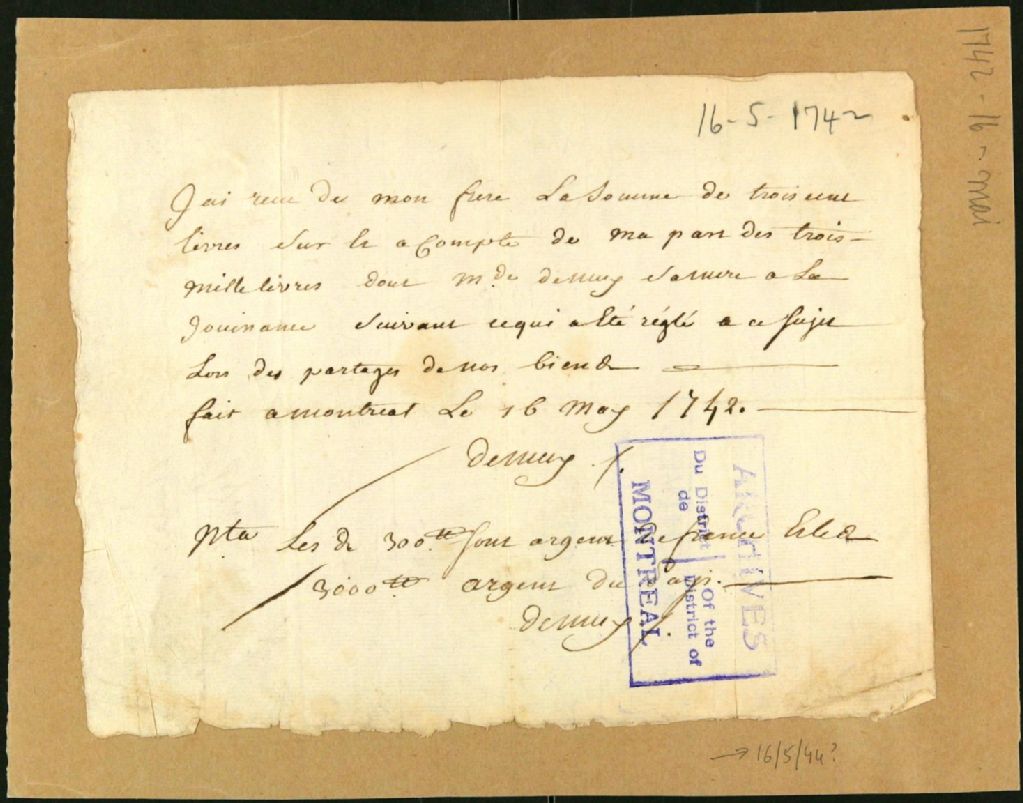 16-5-1742
1742-16-mai
J'ai receu de mon frere La Somme de trois cent
livres Sur et a Compte de ma part des trois-
mille livres dont Md.e demuy Samere a La
Jouissance Suivant cequi a Eté réglé a ce Sujet
Lors des partages de nos biens
fait a montreal Le 16 May 1742.
demuy
Nta Les d 300tt Sont argent de france Et Les
3000tt argent du Pays.
demuy
ARCHIVES
Du District Of the
de District of
MONTREAL
→16/5/44?